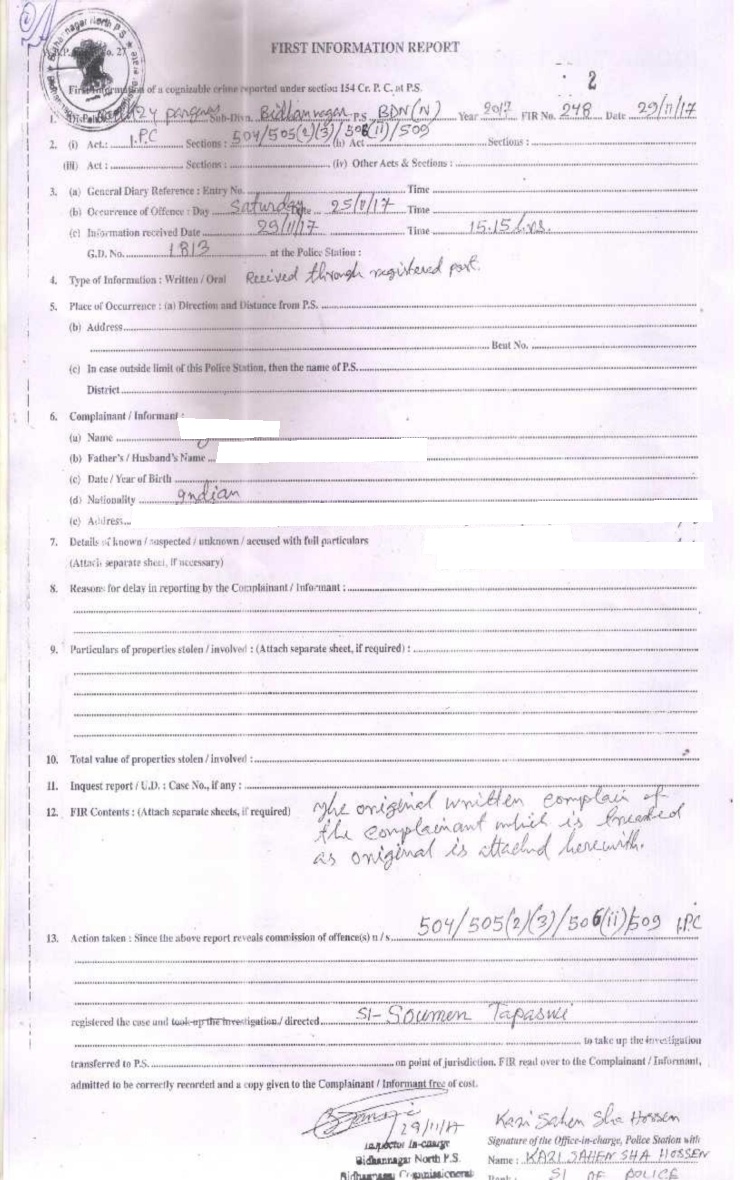 Bidhannagar North P.S.
FIRST INFORMATION REPORT
No. 27
2
First Information of a cognizable crime reported under section 154 Cr. P. C. at P.S.
1. 24 parganas Sub-Divn. Bidhannagar P.S BDN(N) Year 2017 FIR No. 248 Date 29/11/17
2. (i) Act.: I.P.C Sections : 504/505(2)(3)/506(ii)/509 (ii) Act Sections :
(iii) Act : Sections : (iv) Other Acts & Sections :
3. (a) General Diary Reference : Entry No. Time
(b) Occurrence of Offence : Day Saturday Date 25/11/17 Time
(c) Information received Date 29/11/17 Time 15.15 hrs.
G.D. No. 1813 at the Police Station :
4. Type of Information : Written / Oral Received through registered post.
5. Place of Occurrence : (a) Direction and Distance from P.S.
(b) Address
Beat No.
(c) In case outside limit of this Police Station, then the name of P.S.
District
6. Complainant / Informant :
(a) Name
(b) Father's / Husband's Name
(c) Date / Year of Birth
(d) Nationality Indian
(e) Address
7. Details of known / suspected / unknown / accused with full particulars
(Attach separate sheet, if necessary)
8. Reasons for delay in reporting by the Complainant / Informant :
9. Particulars of properties stolen / involved : (Attach separate sheet, if required) :
10. Total value of properties stolen / involved :
11. Inquest report / U.D. : Case No., if any :
12. FIR Contents : (Attach separate sheets, if required) The original written complain of
the complainant which is treated
as original is attached herewith.
13. Action taken : Since the above report reveals commission of offence(s) u / s 504/505(2)(3)/506(ii)/509 I.P.C
registered the case and took-up the investigation / directed SI- Soumen Tapaswi
to take up the investigation
transferred to P.S. on point of jurisdiction. FIR read over to the Complainant / Informant,
admitted to be correctly recorded and a copy given to the Complainant / Informant free of cost.
29/11/17
Inspector In-charge
Bidhannagar North P.S.
Bidhannagar Commissionerat
Kazi Sahen Sha Hossen
Signature of the Office-in-charge, Police Station with
Name : KAZI SAHEN SHA HOSSEN
Rank : SI OF POLICE